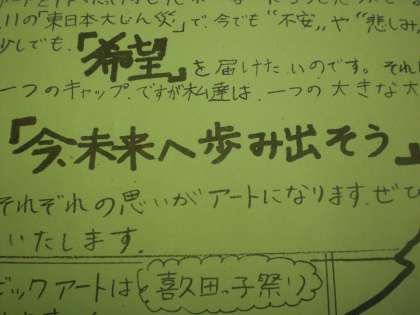 .11の「東日本大じん災」で、今でも"不安"や"悲しみ
少しでも、「希望」を届けたいのです。それ
一つのキャップ。ですが私達は、一つの大きな大
「今、未来へ歩み出そう」
それぞれの思いがアートになります。ぜひ
いたします。
ビックアートは喜久田っ子祭り